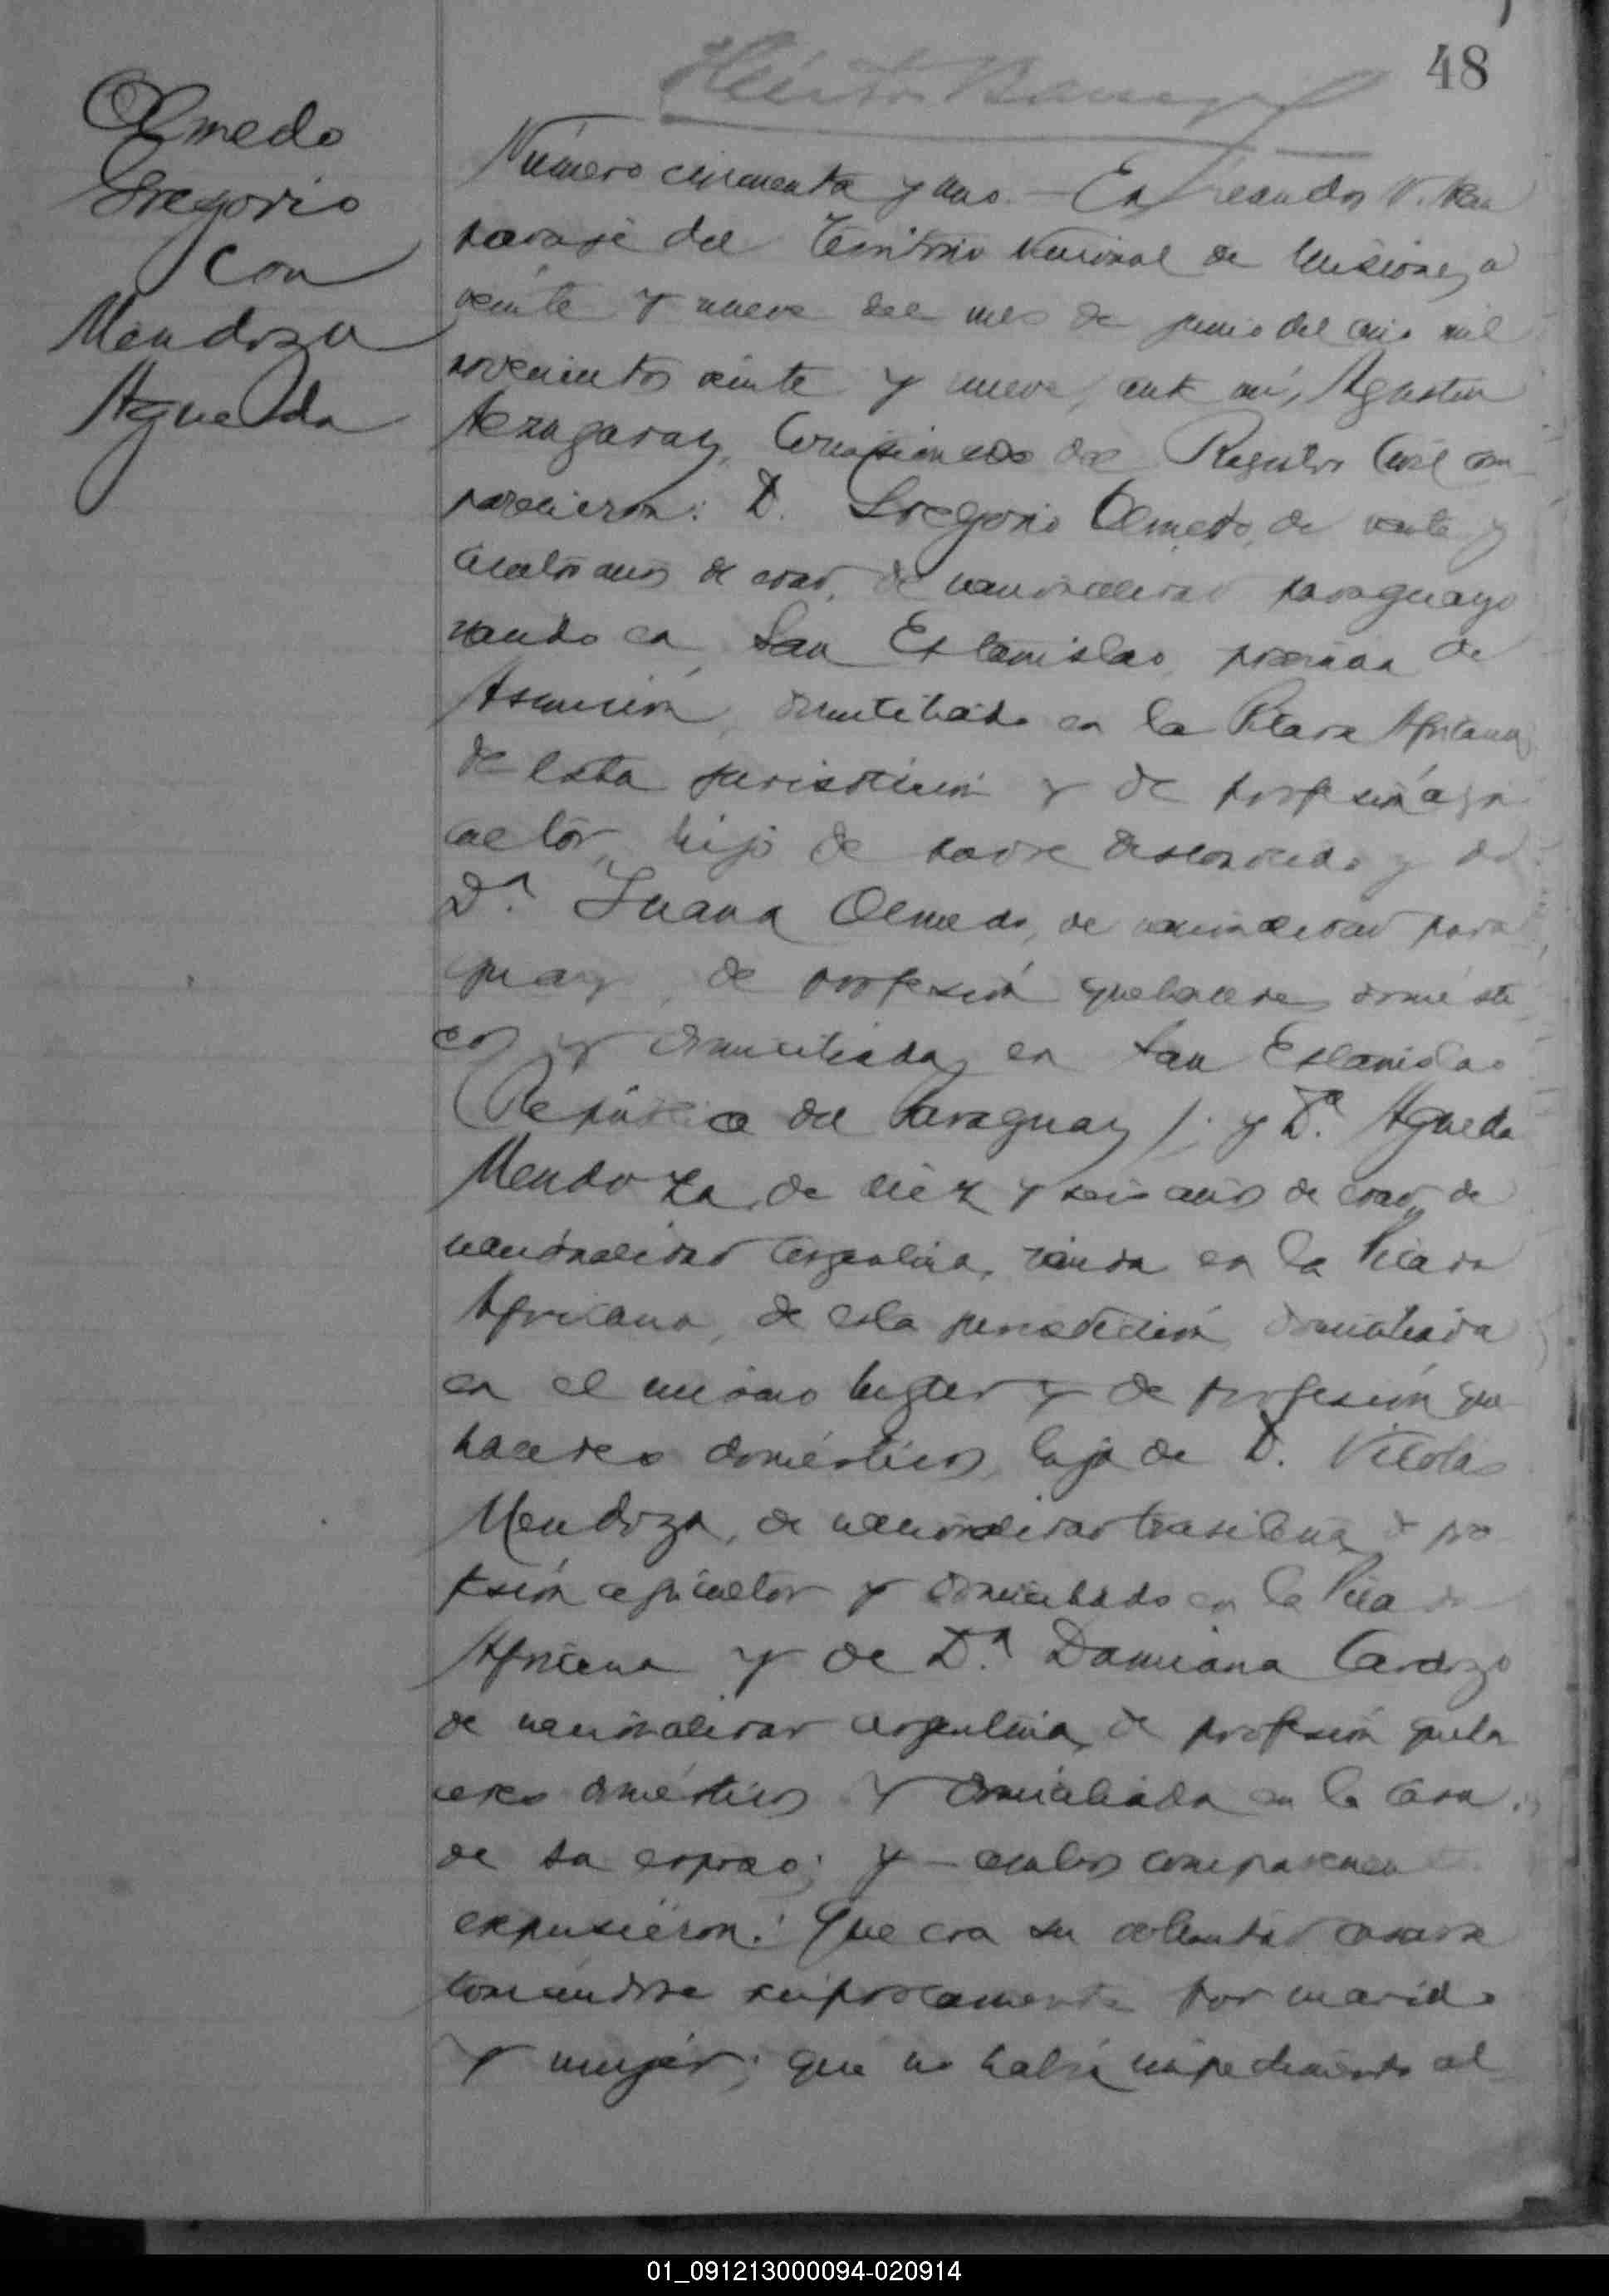 48
Olmedo
Gregorio
con
Mendoza
Agueda
Número cincuenta y uno. — En Leandro N. Alem
paraje del Territorio Nacional de Misiones, a
veinte y nueve del mes de junio del año mil
novecientos veinte y nueve, ante mí, Agustin
Aezagaray, Comisionado del Registro Civil com-
parecieron: D. Gregorio Olmedo, de veinte y
cuatro años de edad, de nacionalidad paraguayo
nacido en San Estanislao, de
Asunción, domiciliado en la Picada Africana
de esta jurisdicción y de profesión agri
cultor, hijo de padre desconocido y de
Dª. Juana Olmedo, de nacionalidad para
guaya, de profesión quehaceres domésti
cos y domiciliada en San Estanislao
(República del Paraguay); y Dª. Agueda
Mendoza, de diez y seis años de edad, de
nacionalidad argentina, nacida en la Picada
Africana, de esta jurisdicción, domiciliada
en el mismo lugar y de profesión que
haceres domésticos, hija de D. Nicolas
Mendoza, de nacionalidad brasilena, de pro
fesión agricultor y domiciliado en la Picada
Africana y de Dª. Damiana Cardozo
de nacionalidad argentina, de profesión queha
ceres domésticos y domiciliada en la casa
de su esposo; y ambos comparecien
expusieron: Que era su voluntad casarse
tomándose recíprocamente por marido
y mujer; que no había impedimento al
01_091213000094-020914